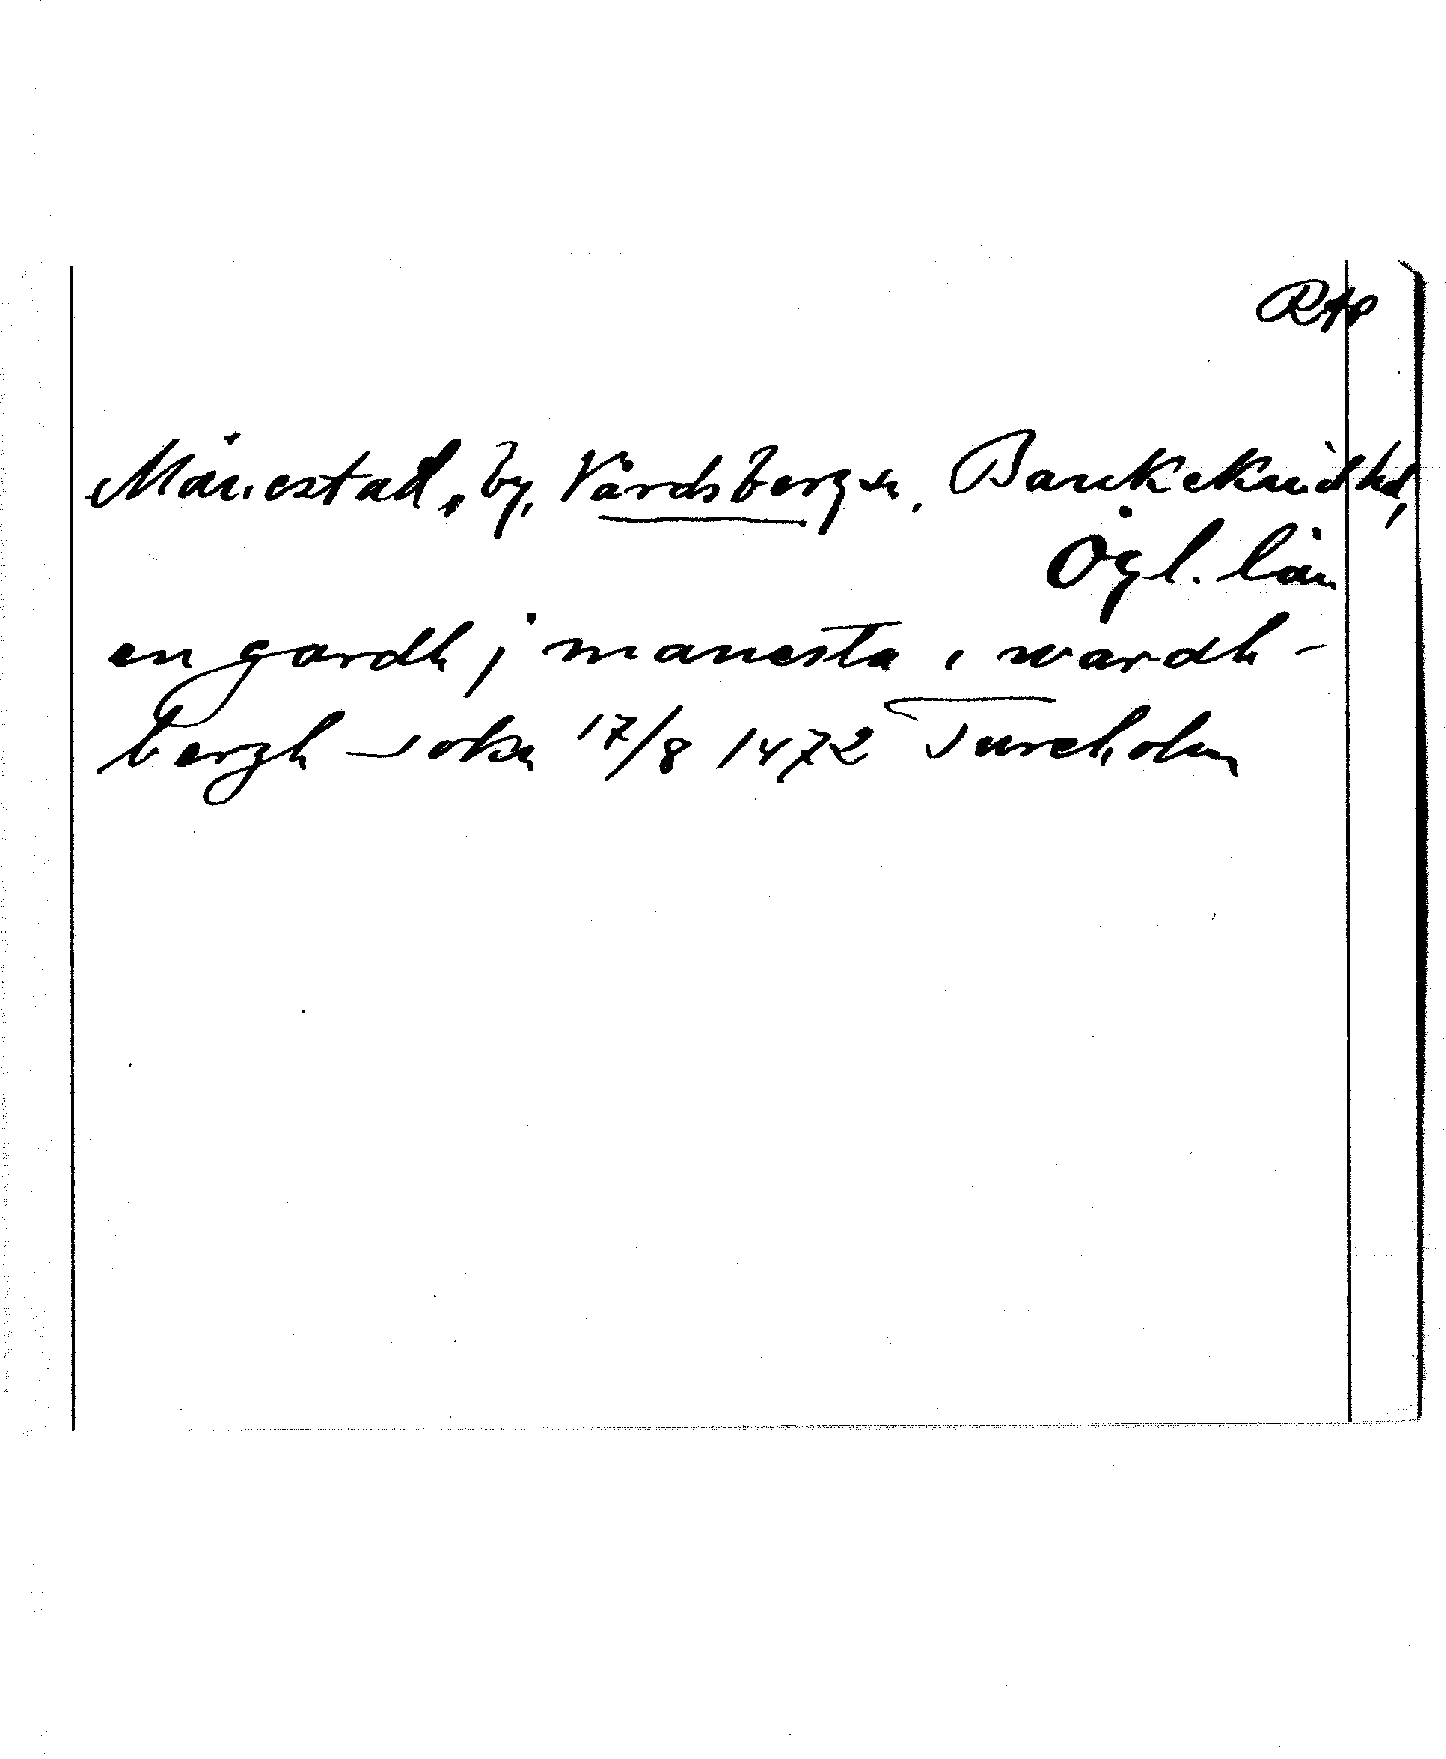 RAp
Månestad, by, Vårdsbergs sn, Bankekinds hd,
Ögl. län
en gardh j manesta i wardh-
bergh sokn 17/8 1472 Tureholm